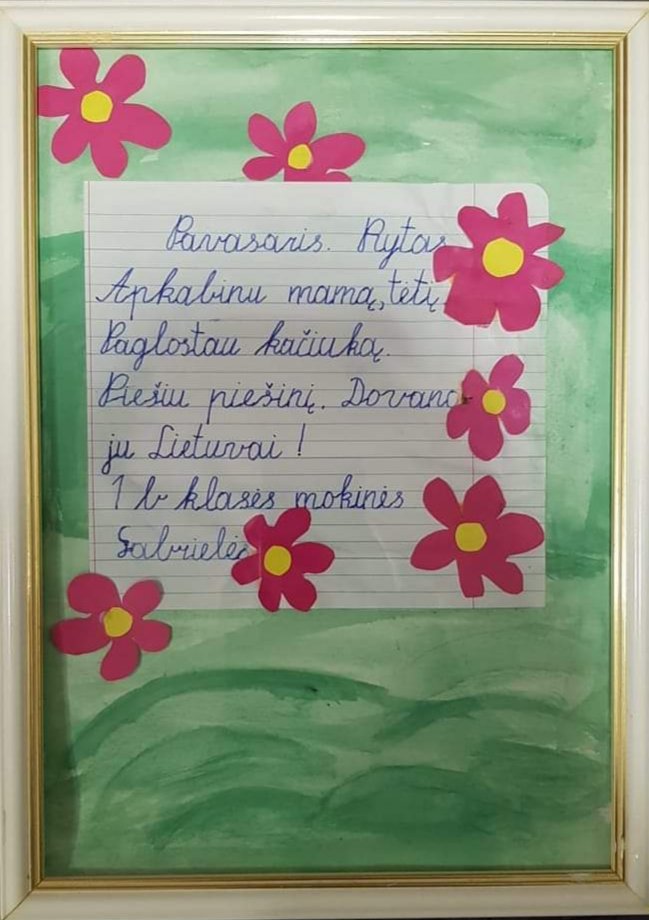 Pavasaris. Rytas
Apkabinu mamą, tėtį
Paglostau kačiuką.
Piešiu piešinį. Dovano-
ju Lietuvai !
1 b klasės mokinės
Gabrielės